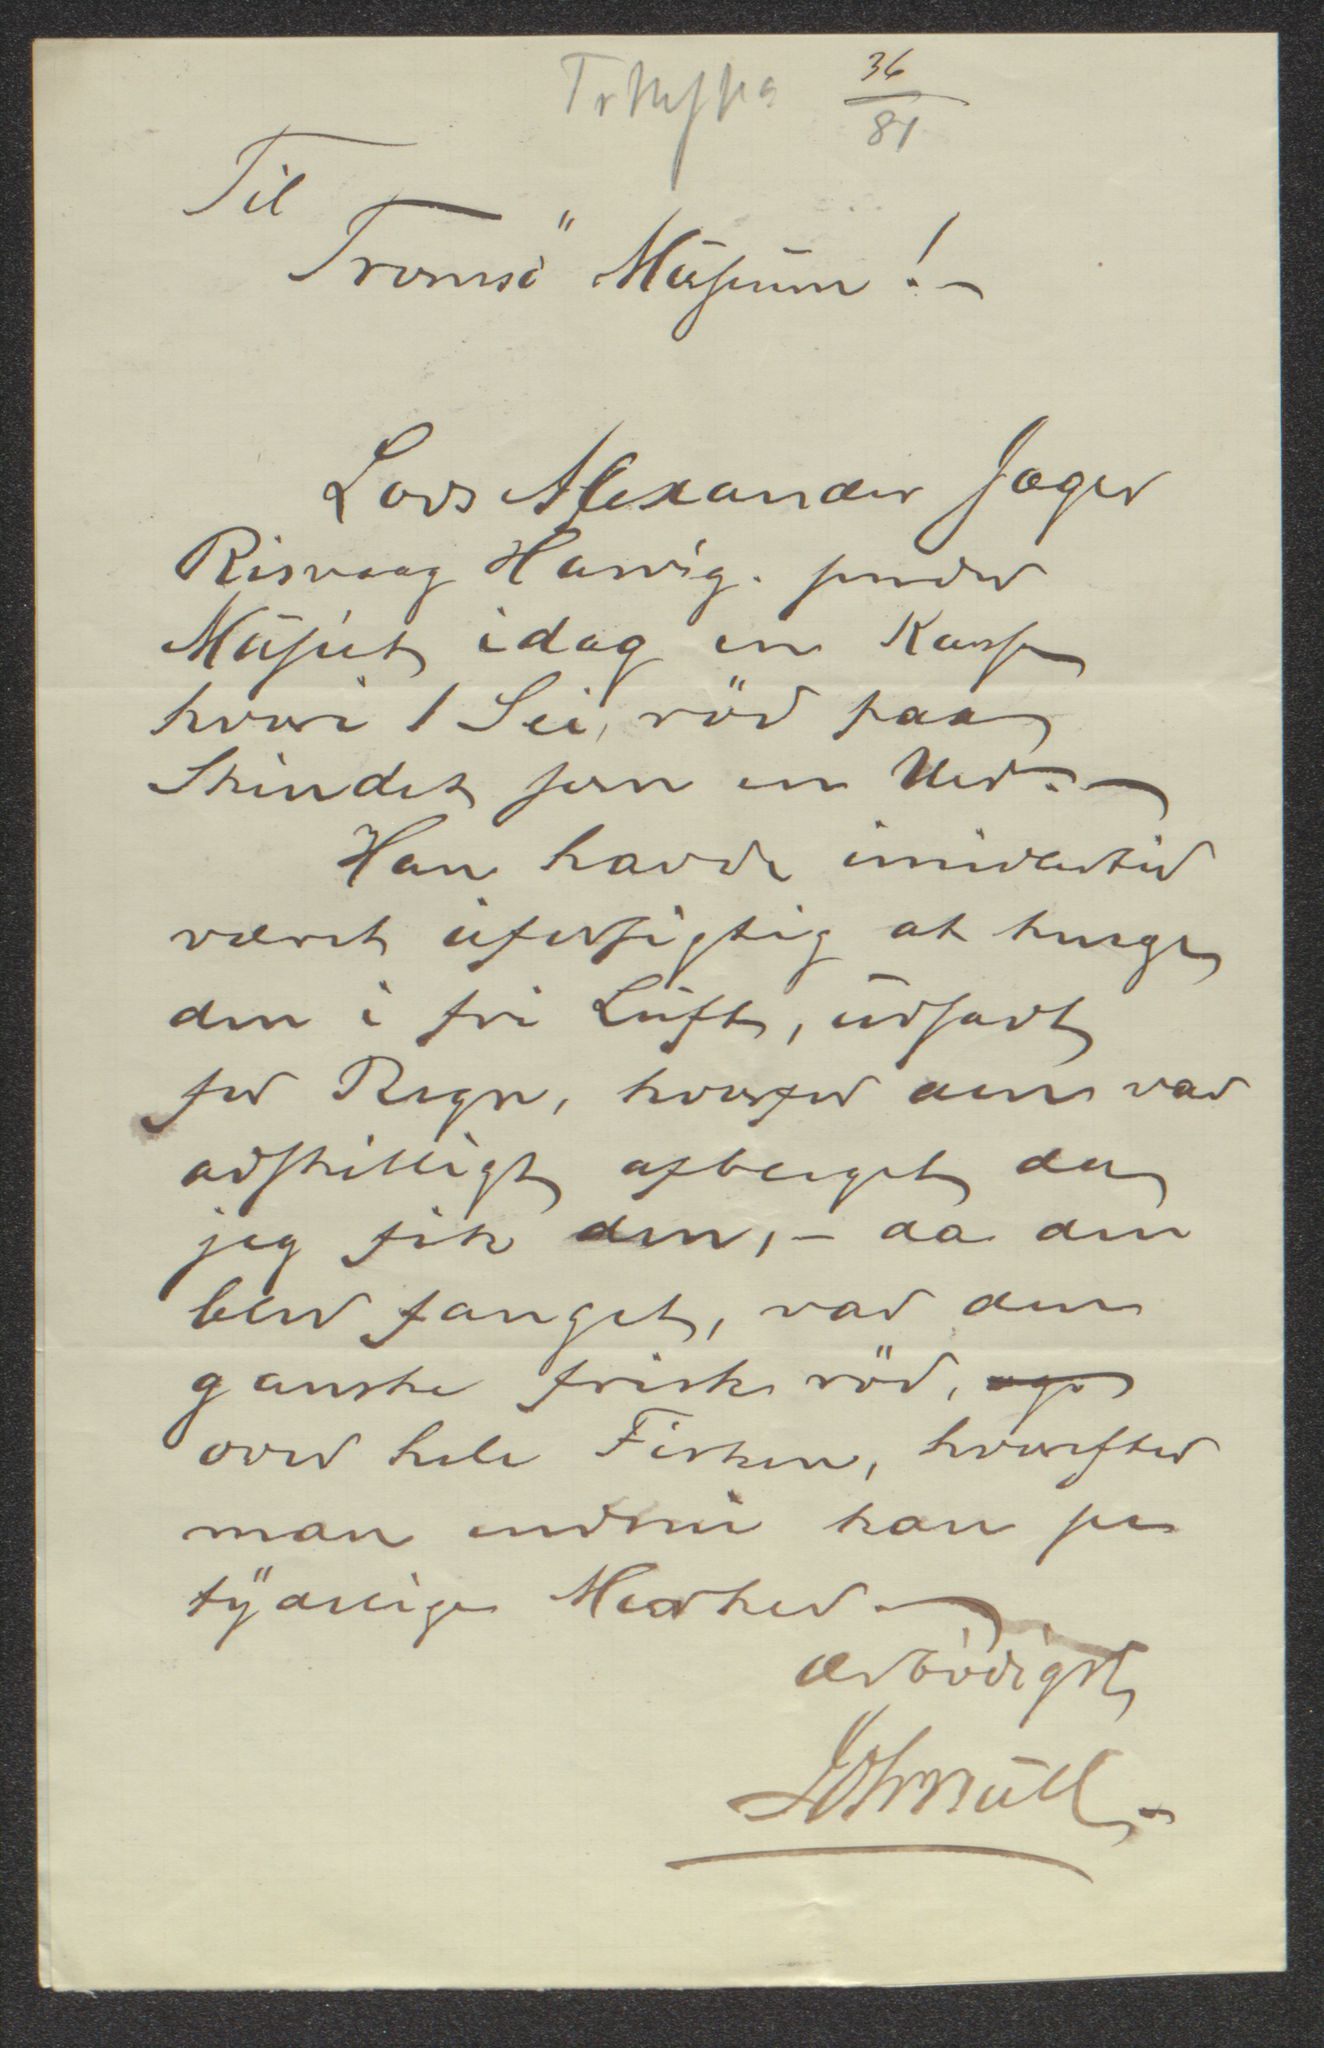 36
81
Til
Tromsö Museum! -
Lods Alexander Jæger
Risvaag Hassvig. sender
Museet idag en Kasse
hvori 1 Sei, röd paa
Skindet som en Uer. -
Han havde imidlertid
været uforsigtig at hænge
den i fri Luft, udsadt
for Regn, hvorfor den var
adskilligt afbleget da
jeg fik den, - da den
blev fanget, var den
ganske frisk röd,
over hele Fisken, hvorefter
man endnu kan se
tydelige Merker. -
Ærbödigst